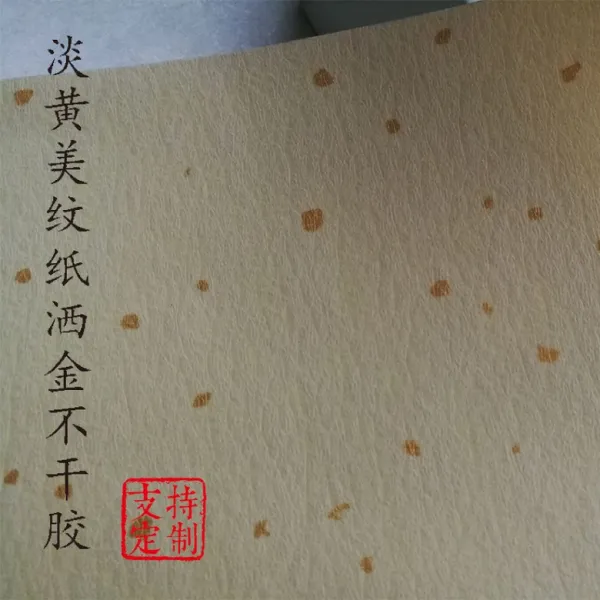 淡黄美纹纸洒金不干胶
支持
定制